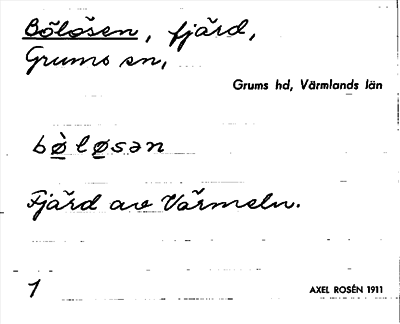 Bölösen, fjärd,
Grums sn,
Grums hd, Värmlands län
bø̀løsən
Fjärd av Värmeln.
1
AXEL ROSÉN 1911